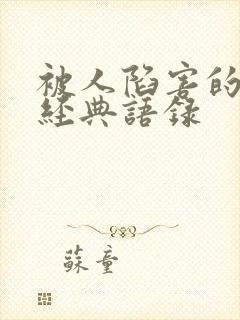 被人陷害的
經典語錄
蘇童